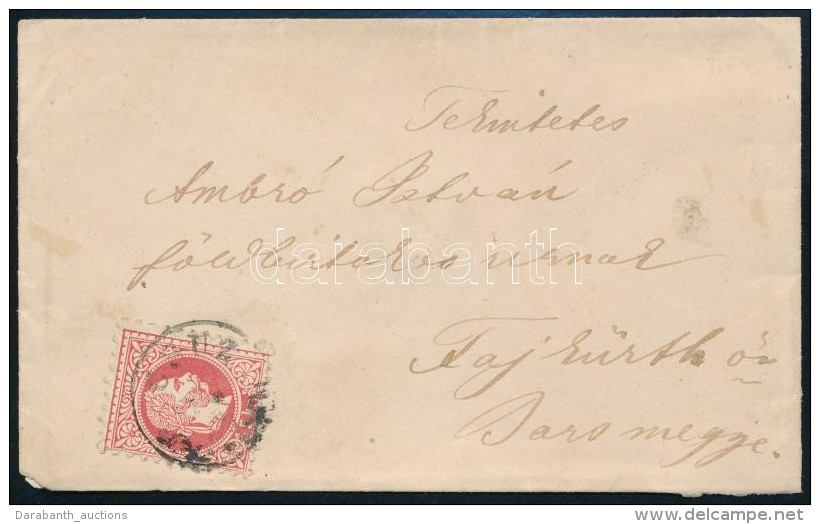 Temtetes
Ambró István
földbirtokos urnak
Fajkürthön
Barsmegye.
darabanth
Darabanth_auctions
delcampe.net